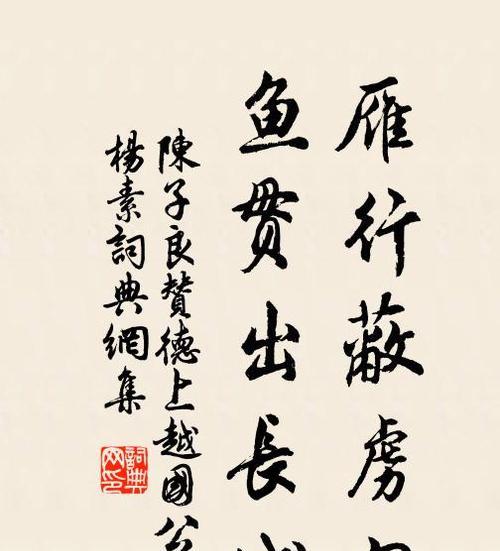 雁行蔽虏
鱼贯出長
陳子良贊德上越國公
楊素詞典網集
詞典网印